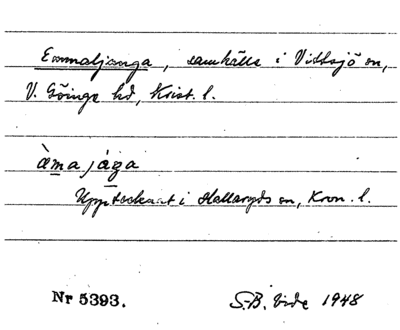 Emmaljunga, samhälle i Vittsjö sn,
V. Göinge hd, Krist. l.
àma jága
Upptecknat i Hallaryds sn, Kron. l.
Nr 5393. S-B. Vide 1948